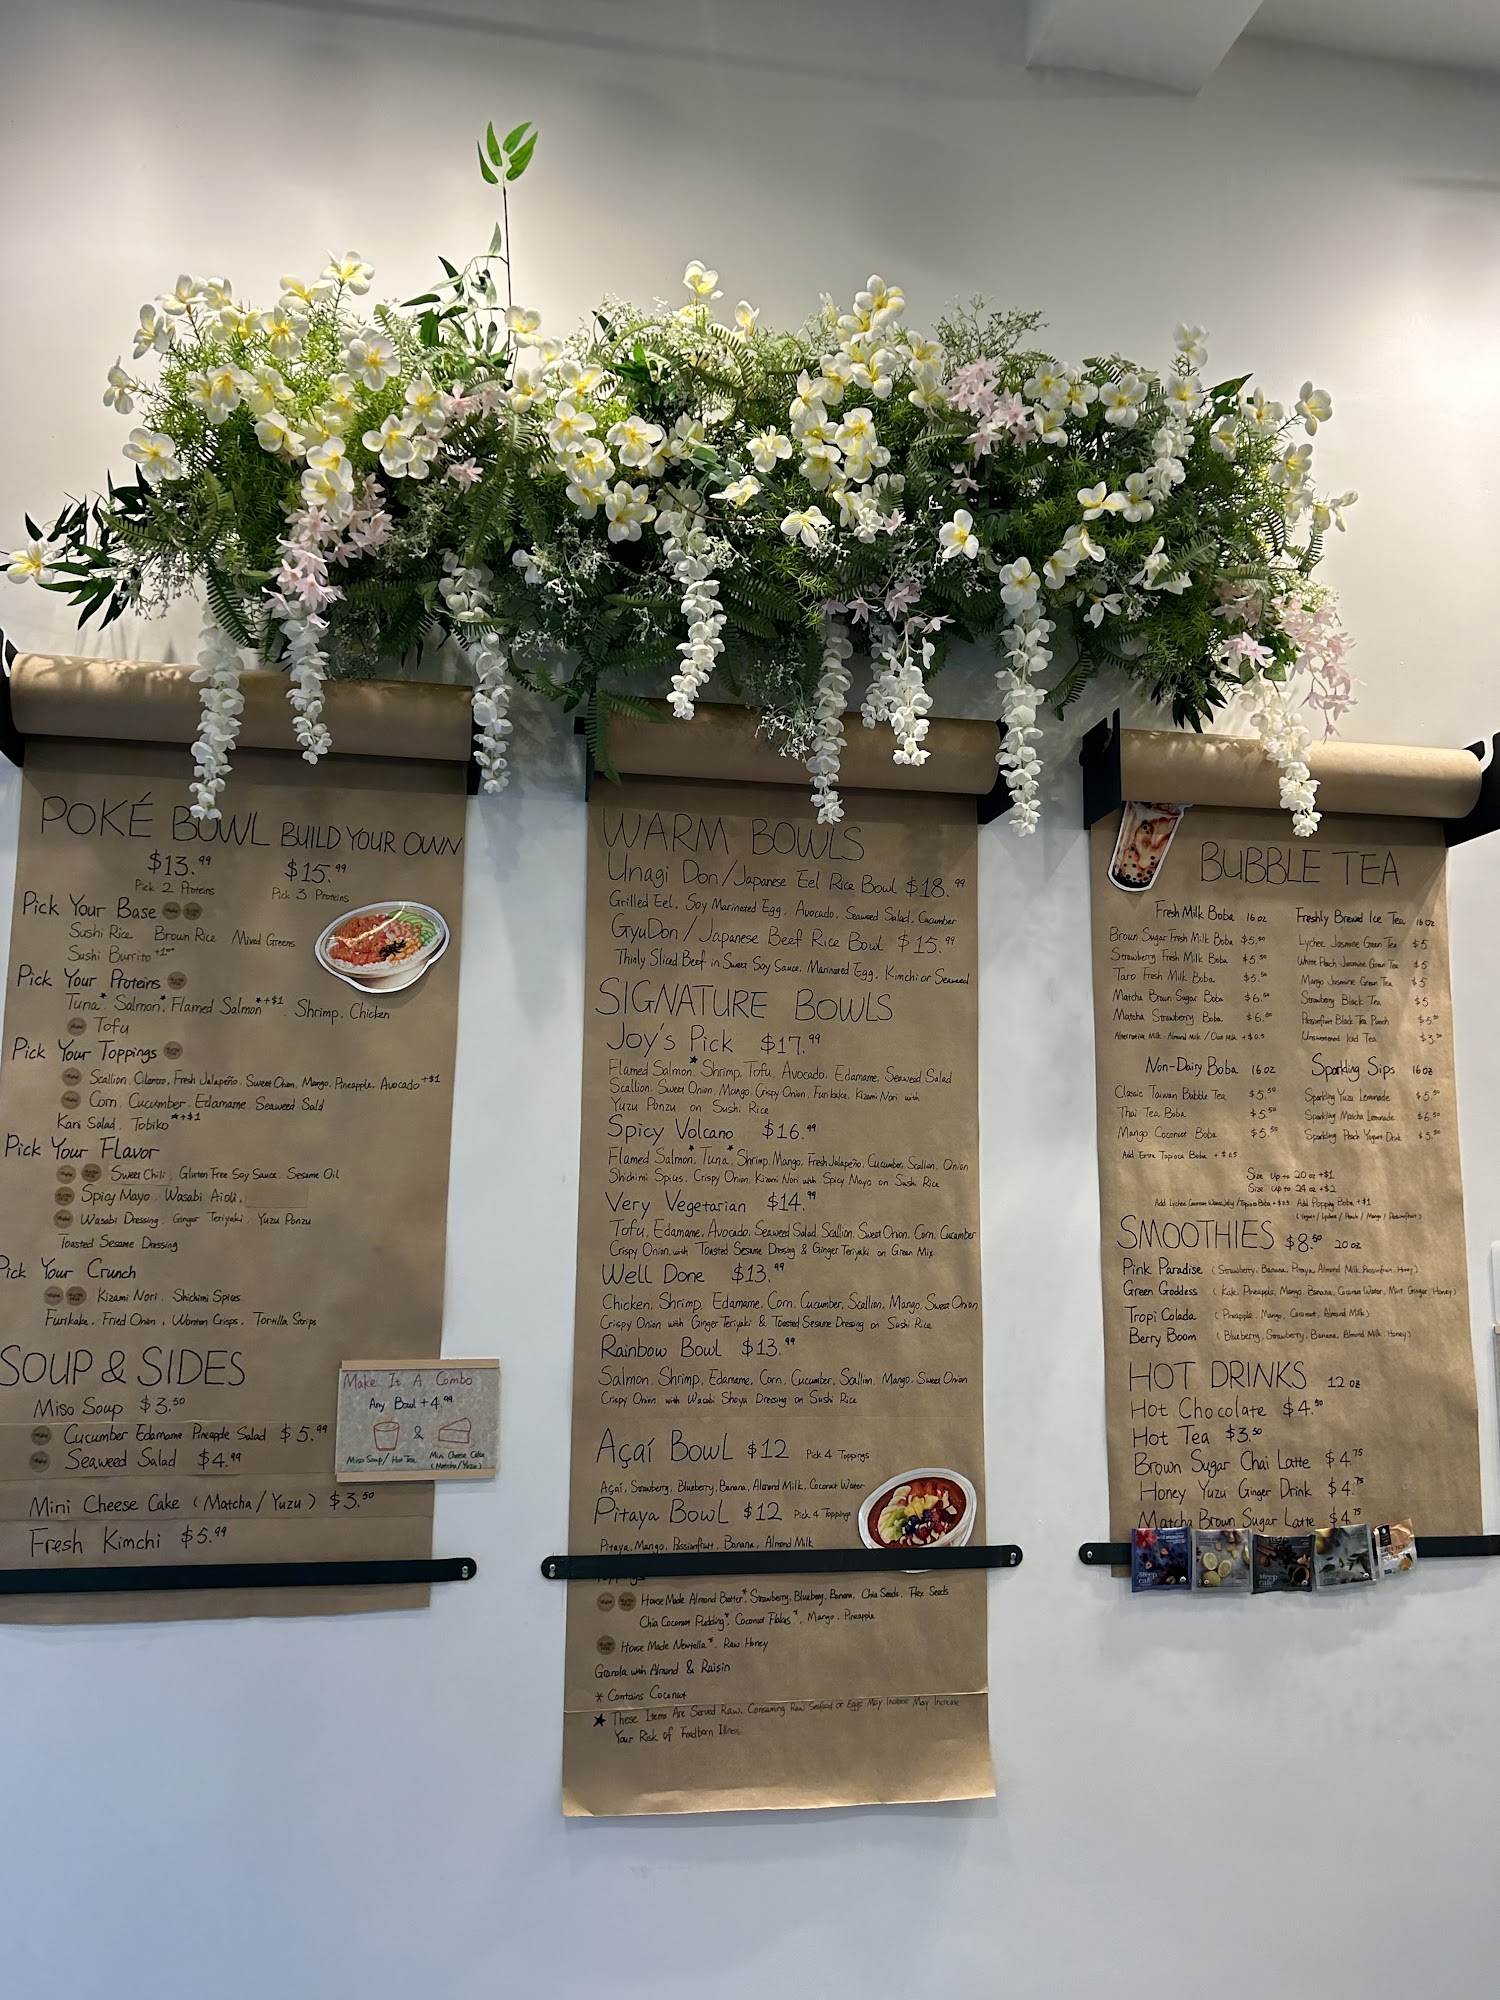 POKÉ BOWL BUILD YOUR OWN
$13.99 $15.99
Pick 2 Proteins Pick 3 Proteins
Pick Your Base
Sushi Rice Brown Rice Mixed Greens
Sushi Burrito
Pick Your Proteins
Tuna* Salmon* Flamed Salmon*+$1 Shrimp. Chicken
Tofu
Pick Your Toppings
Scallion, Cilantro, Fresh Jalapeño, Sweet Onion, Mango, Pineapple, Avocado+$1
Corn, Cucumber, Edamame Seaweed Salad
Kani Salad, Tobiko*+$1
Pick Your Flavor
Sweet Chili, Gluten Free Soy Sauce, Sesame Oil
Spicy Mayo, Wasabi Aioli,
Wasabi Dressing, Ginger Teriyaki, Yuzu Ponzu
Toasted Sesame Dressing
Pick Your Crunch
Kizami Nori, Shichimi Spices
Furikake, Fried Onion, Wonton Crisps, Tortilla Strips
SOUP & SIDES
Miso Soup $3.50
Cucumber Edamame Pineapple Salad $5.99
Seaweed Salad $4.99
Mini Cheese Cake (Matcha/Yuzu) $3.50
Fresh Kimchi $5.99
Make It A Combo
Any Bowl +4.99
&
Miso Soup/Hot Tea Mini Cheese Cake
(Matcha/Yuzu)
WARM BOWLS
Unagi Don/Japanese Eel Rice Bowl $18.99
Grilled Eel, Soy Marinated Egg, Avocado, Seaweed Salad, Cucumber
GyuDon/Japanese Beef Rice Bowl $15.99
Thinly Sliced Beef in Sweet Soy Sauce, Marinated Egg, Kimchi or Seaweed
SIGNATURE BOWLS
Joy's Pick $17.99
Flamed Salmon*, Shrimp, Tofu, Avocado, Edamame, Seaweed Salad
Scallion, Sweet Onion, Mango, Crispy Onion, Furikake, Kizami Nori with
Yuzu Ponzu on Sushi Rice
Spicy Volcano $16.99
Flamed Salmon*, Tuna*, Shrimp, Mango, Fresh Jalapeño, Cucumber, Scallion, Onion
Shichimi Spices, Crispy Onion, Kizami Nori with Spicy Mayo on Sushi Rice
Very Vegetarian $14.99
Tofu, Edamame, Avocado, Seaweed Salad, Scallion, Sweet Onion, Corn, Cucumber
Crispy Onion, with Toasted Sesame Dressing & Ginger Teriyaki on Green Mix
Well Done $13.99
Chicken, Shrimp, Edamame, Corn, Cucumber, Scallion, Mango, Sweet Onion
Crispy Onion with Ginger Teriyaki & Toasted Sesame Dressing on Sushi Rice
Rainbow Bowl $13.99
Salmon, Shrimp, Edamame, Corn, Cucumber, Scallion, Mango, Sweet Onion
Crispy Onion with Wasabi Shoyu Dressing on Sushi Rice
Açaí Bowl $12 Pick 4 Toppings
Açaí, Strawberry, Blueberry, Banana, Almond Milk, Coconut Water
Pitaya Bowl $12 Pick 4 Toppings
Pitaya, Mango, Passionfruit, Banana, Almond Milk
Toppings
House Made Almond Butter*, Strawberry, Blueberry, Banana, Chia Seeds, Flex Seeds
Chia Coconut Pudding*, Coconut Flakes*, Mango, Pineapple
House Made Newtella*, Raw Honey
Granola with Almond & Raisin
* Contains Coconut
★ These Items Are Served Raw. Consuming Raw Seafood or Eggs May Increase May Increase
Your Risk of Foodborn Illness
BUBBLE TEA
Fresh Milk Boba 16 oz
Brown Sugar Fresh Milk Boba $5.50
Strawberry Fresh Milk Boba $5.50
Taro Fresh Milk Boba $5.50
Matcha Brown Sugar Boba $6.50
Matcha Strawberry Boba $6.50
Alternative Milk: Almond Milk/Oat Milk +$0.5
Freshly Brewed Ice Tea 16 oz
Lychee Jasmine Green Tea $5
White Peach Jasmine Green Tea $5
Mango Jasmine Green Tea $5
Strawberry Black Tea $5
Passionfruit Black Tea Punch $5.50
Unsweetened Iced Tea $3.50
Non-Dairy Boba 16 oz
Classic Taiwan Bubble Tea $5.50
Thai Tea Boba $5.50
Mango Coconut Boba $5.50
Add Extra Tapioca Boba +$0.5
Sparkling Sips 16 oz
Sparkling Yuzu Lemonade $5.50
Sparkling Matcha Lemonade $6.50
Sparkling Peach Yogurt Drink $5.50
Size Up to 20 oz +$1
Size Up to 24 oz +$2
Add Popping Boba +$1
(Yogurt/Lychee/Peach/Mango/Passionfruit)
SMOOTHIES $8.50 20 oz
Pink Paradise (Strawberry, Banana, Pitaya, Almond Milk, Passionfruit, Honey)
Green Goddess (Kale, Pineapple, Mango, Banana, Coconut Water, Mint, Ginger, Honey)
Tropi Colada (Pineapple, Mango, Coconut, Almond Milk)
Berry Boom (Blueberry, Strawberry, Banana, Almond Milk, Honey)
HOT DRINKS 12 oz
Hot Chocolate $4.50
Hot Tea $3.50
Brown Sugar Chai Latte $4.75
Honey Yuzu Ginger Drink $4.75
Matcha Brown Sugar Latte $4.75